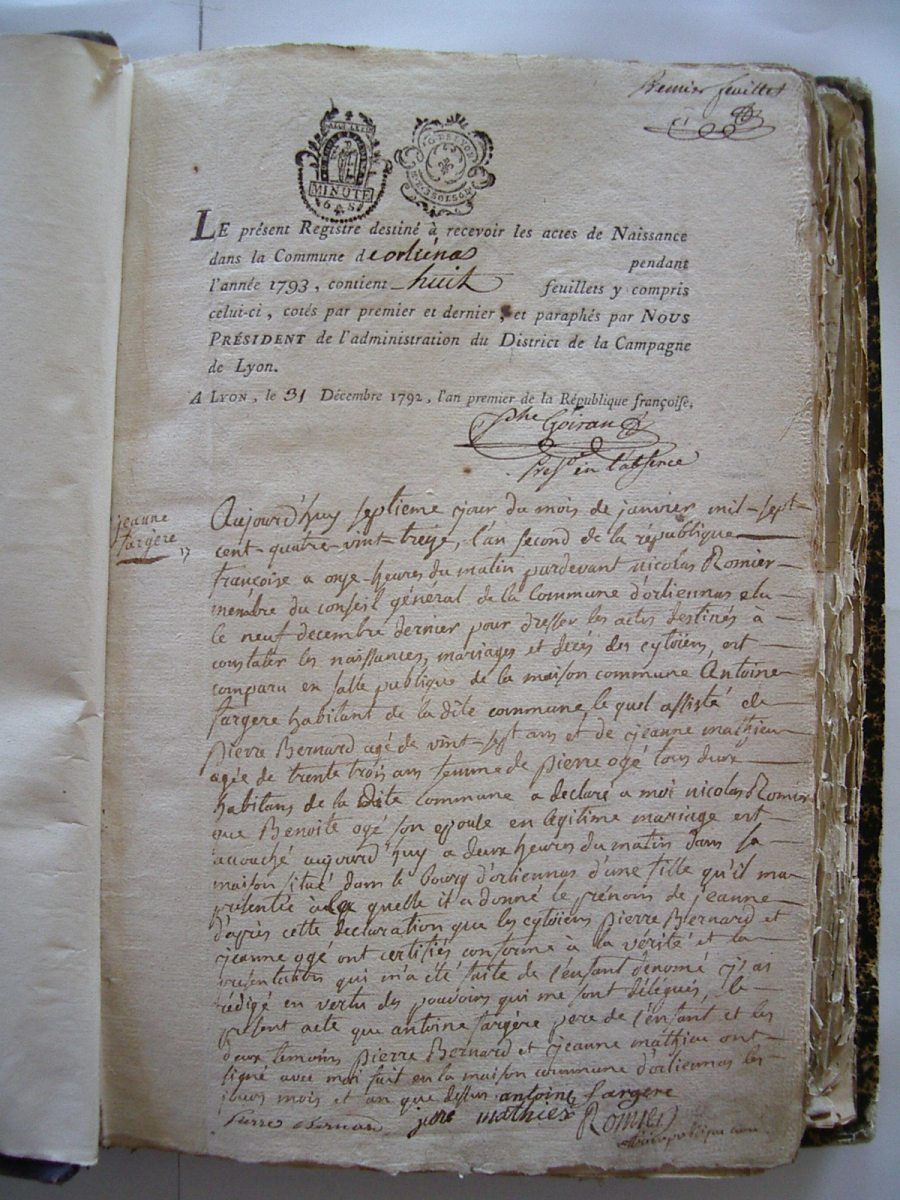 Premier feuillet
MINUTE
6 S
LE présent Registre destiné à recevoir les actes de Naissance
dans la Commune d'orliénas pendant
l'année 1793, contient huit feuillets y compris
celui-ci, cotés par premier et dernier, et paraphés par NOUS
PRÉSIDENT de l'administration du District de la Campagne
de Lyon.
A LYON, le 31 Décembre 1792, l'an premier de la République françoise.
en l'absence
jeanne
fargère
Aujourd'huy septieme jour du mois de janvier mil-sept-
cent-quatre-vint treize, l'an second de la république
françoise a onze-heures du matin pardevant nicolas Romier
membre du conseil général de la Commune d'orliennas elu
le neuf decembre dernier pour dresser les actes destinés à
constater les naissances, mariages et decés des cytoiens, est
comparu en salle publique de la maison commune Antoine
fargere habitant de la dite commune, le quel assisté de
pierre Bernard agé de vint-sept ans et de jeanne mathieu
agée de trente trois ans femme de pierre ogé tous deux
habitans de la dite commune a declaré a moi nicolas Romier
que Benoite ogé son epouse en legitime mariage est
accouché aujourd'huy a deux heures du matin dans sa
maison situé dans le Bourg d'orliennas d'une fille qu'il ma
présentée à la quelle il a donné le prénom de jeanne
d'après cette declaration que les cytoiens pierre Bernard et
jeanne ogé ont certifiés conforme à la vérité et la
présentation qui m'a été faite de l'enfant dénomé j'ai
rédigé en vertu des pouvoirs qui me sont délegués, le
présent acte que antoine fargère pere de l'enfant et les
deux temoins pierre Bernard et jeanne mathieu ont
signé avec moi fait en la maison commune d'orliennas les
jours mois et an que dessus antoine fargere
pierre Bernard mathieu Romier